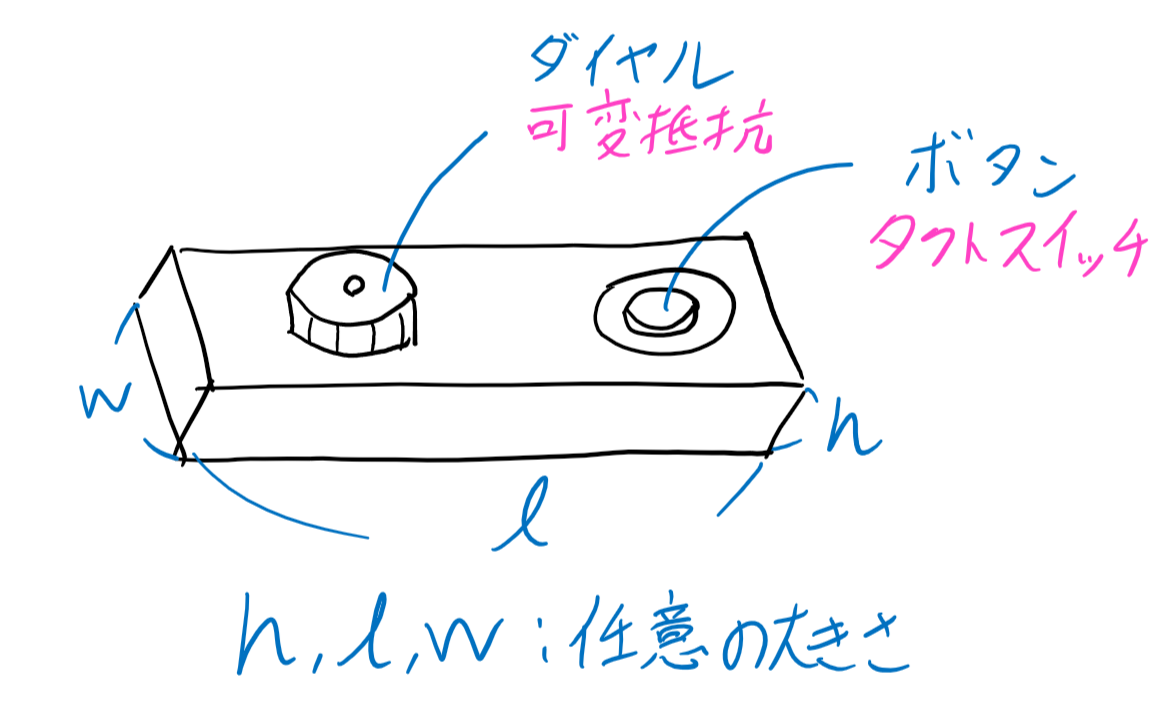 ダイヤル
可変抵抗
ボタン
タクトスイッチ
w
h
l
h, l, w : 任意の大きさ